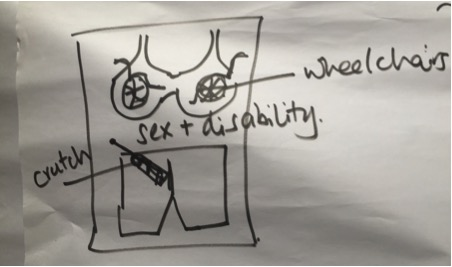 wheelchairs
sex + disability.
crutch